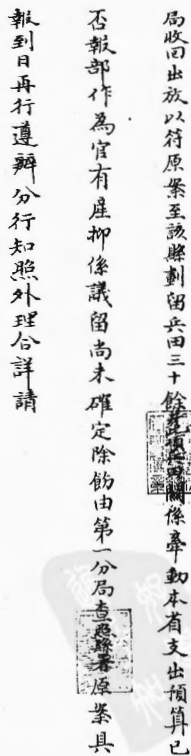 局收回出放以符原案至該縣劃留兵田三十餘畝此項兵田關係牽動本省支出預算已
否報部作為官有產抑係議留尚未確定除飭由第一分局查照縣署原案具
報到日再行遵辦分行知照外理合詳請